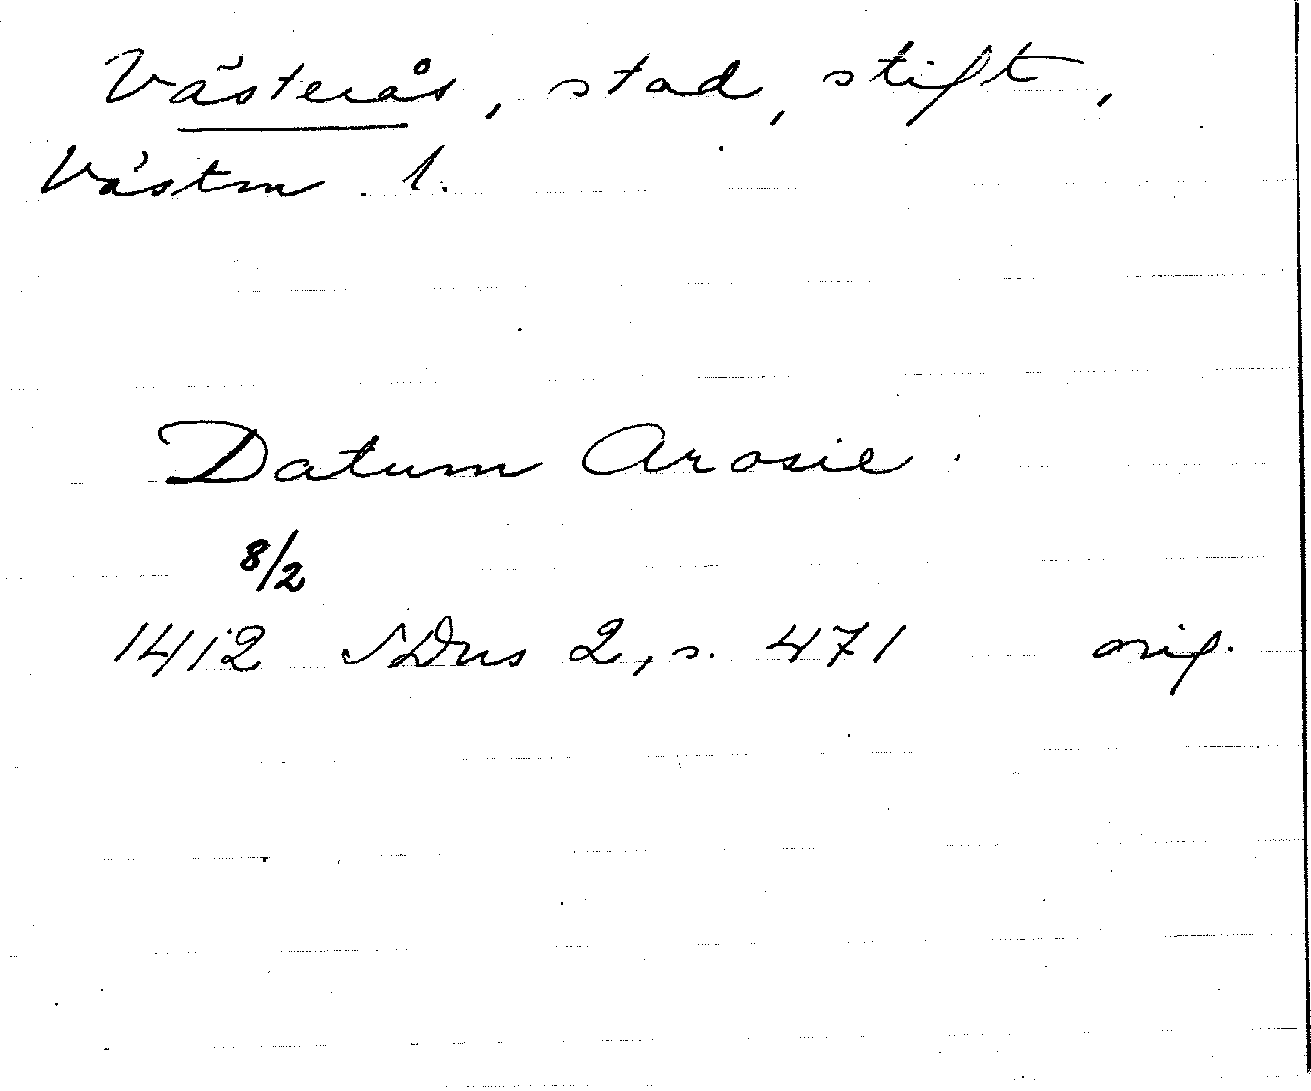 Västerås, stad, stift,
Västm. l.
Datum Arosie.
8/2
1412 SDns 2, s. 471 orig.